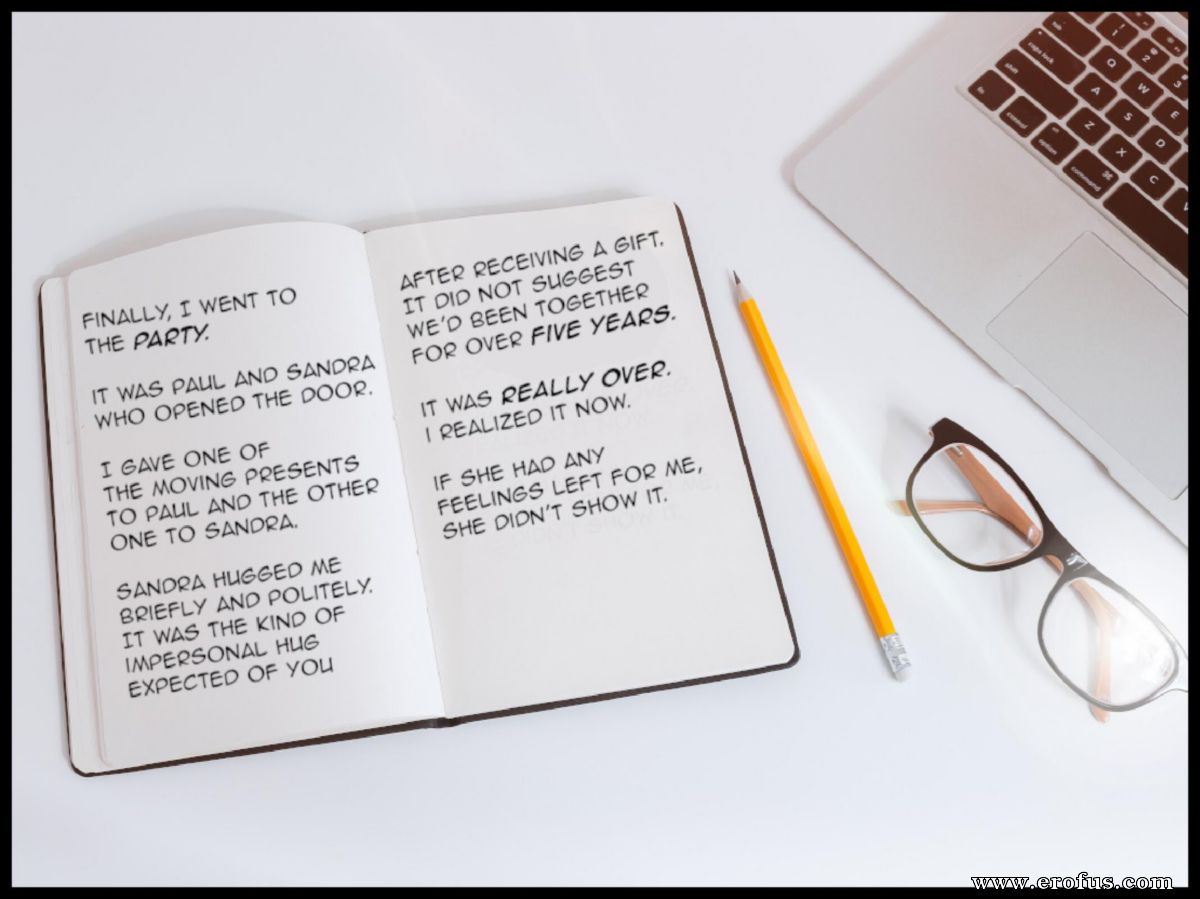 FINALLY, I WENT TO
THE PARTY.
IT WAS PAUL AND SANDRA
WHO OPENED THE DOOR.
I GAVE ONE OF
THE MOVING PRESENTS
TO PAUL AND THE OTHER
ONE TO SANDRA.
SANDRA HUGGED ME
BRIEFLY AND POLITELY.
IT WAS THE KIND OF
IMPERSONAL HUG
EXPECTED OF YOU
AFTER RECEIVING A GIFT.
IT DID NOT SUGGEST
WE'D BEEN TOGETHER
FOR OVER FIVE YEARS.
IT WAS REALLY OVER.
I REALIZED IT NOW.
IF SHE HAD ANY
FEELINGS LEFT FOR ME,
SHE DIDN'T SHOW IT.
tab
! 1
@ 2
# 3
caps lock
Q
W
E
shift
A
S
D
fn
control
alt
option
⌘
command
Z
X
C
www.erofus.com